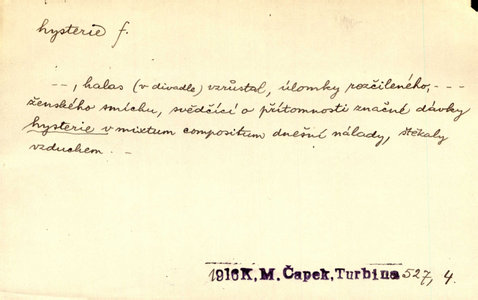 hysterie f.
- -, halas (v divadle) vzrůstal, úlomky rozčileného, - - -
ženského smíchu, svědčící o přítomnosti značné dávky
hysterie v mixtum compositum dnešní nálady, štěkaly
vzduchem. -
1916K.M. Čapek, Turbina 527, 4.